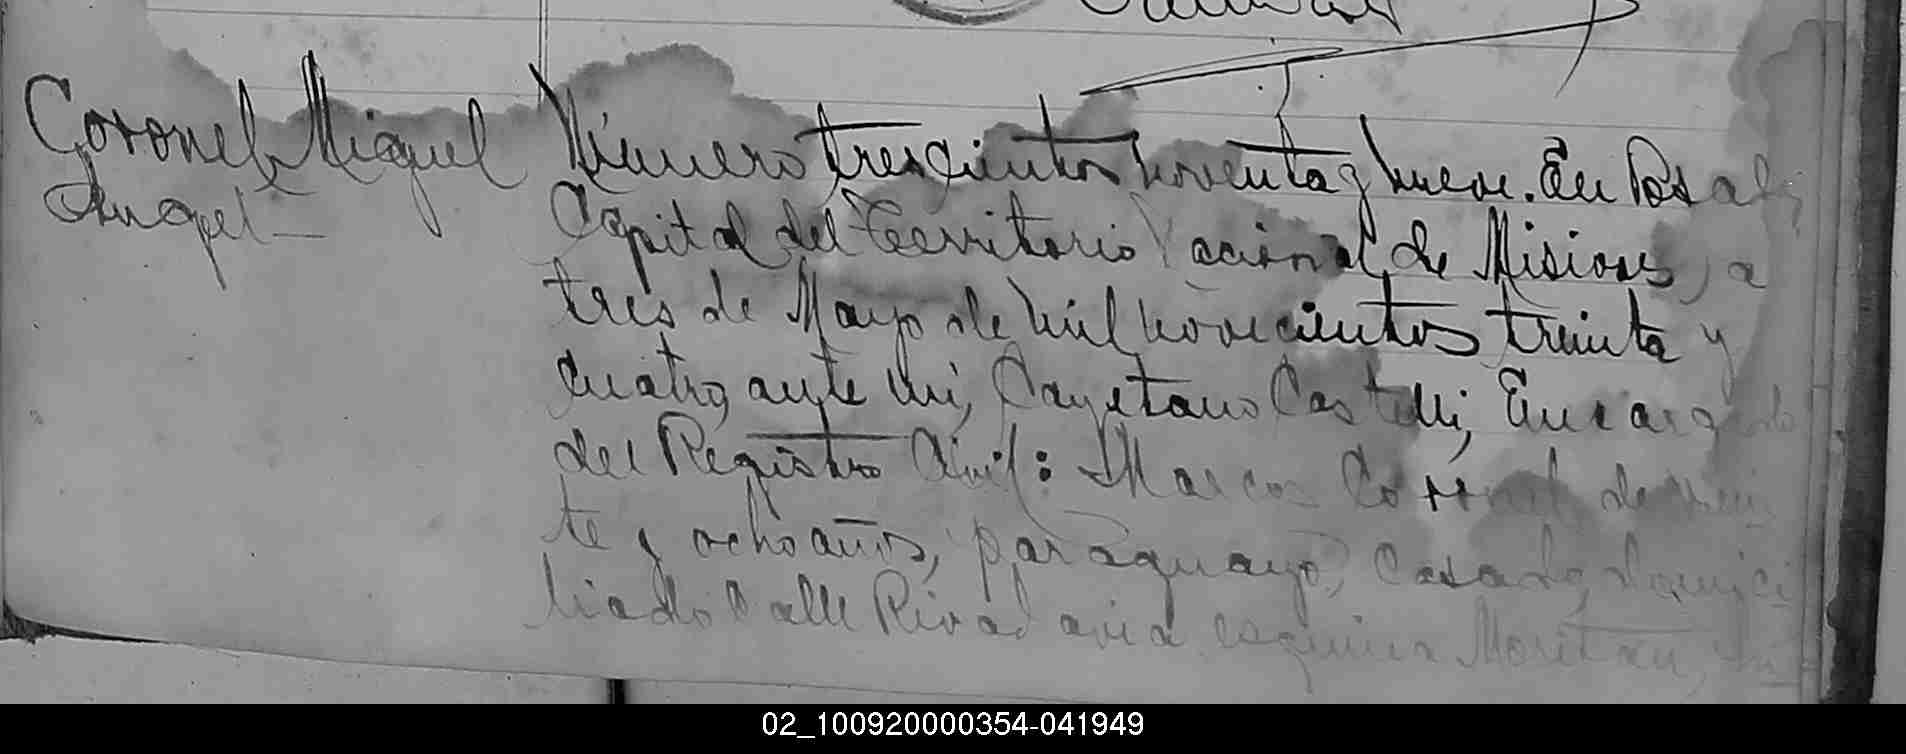 Coronel Miguel
Angel —
Número trescientos noventa y nueve. En Posadas,
Capital del Territorio Nacional de Misiones, a
tres de Mayo de mil novecientos treinta y
cuatro, ante mi, Cayetano Castelli, Encargado
del Registro Civil: Marcos Coronel, de vein
te y ocho años, paraguayo, casado, domici
liado calle Rivadavia esquina
02_100920000354-041949